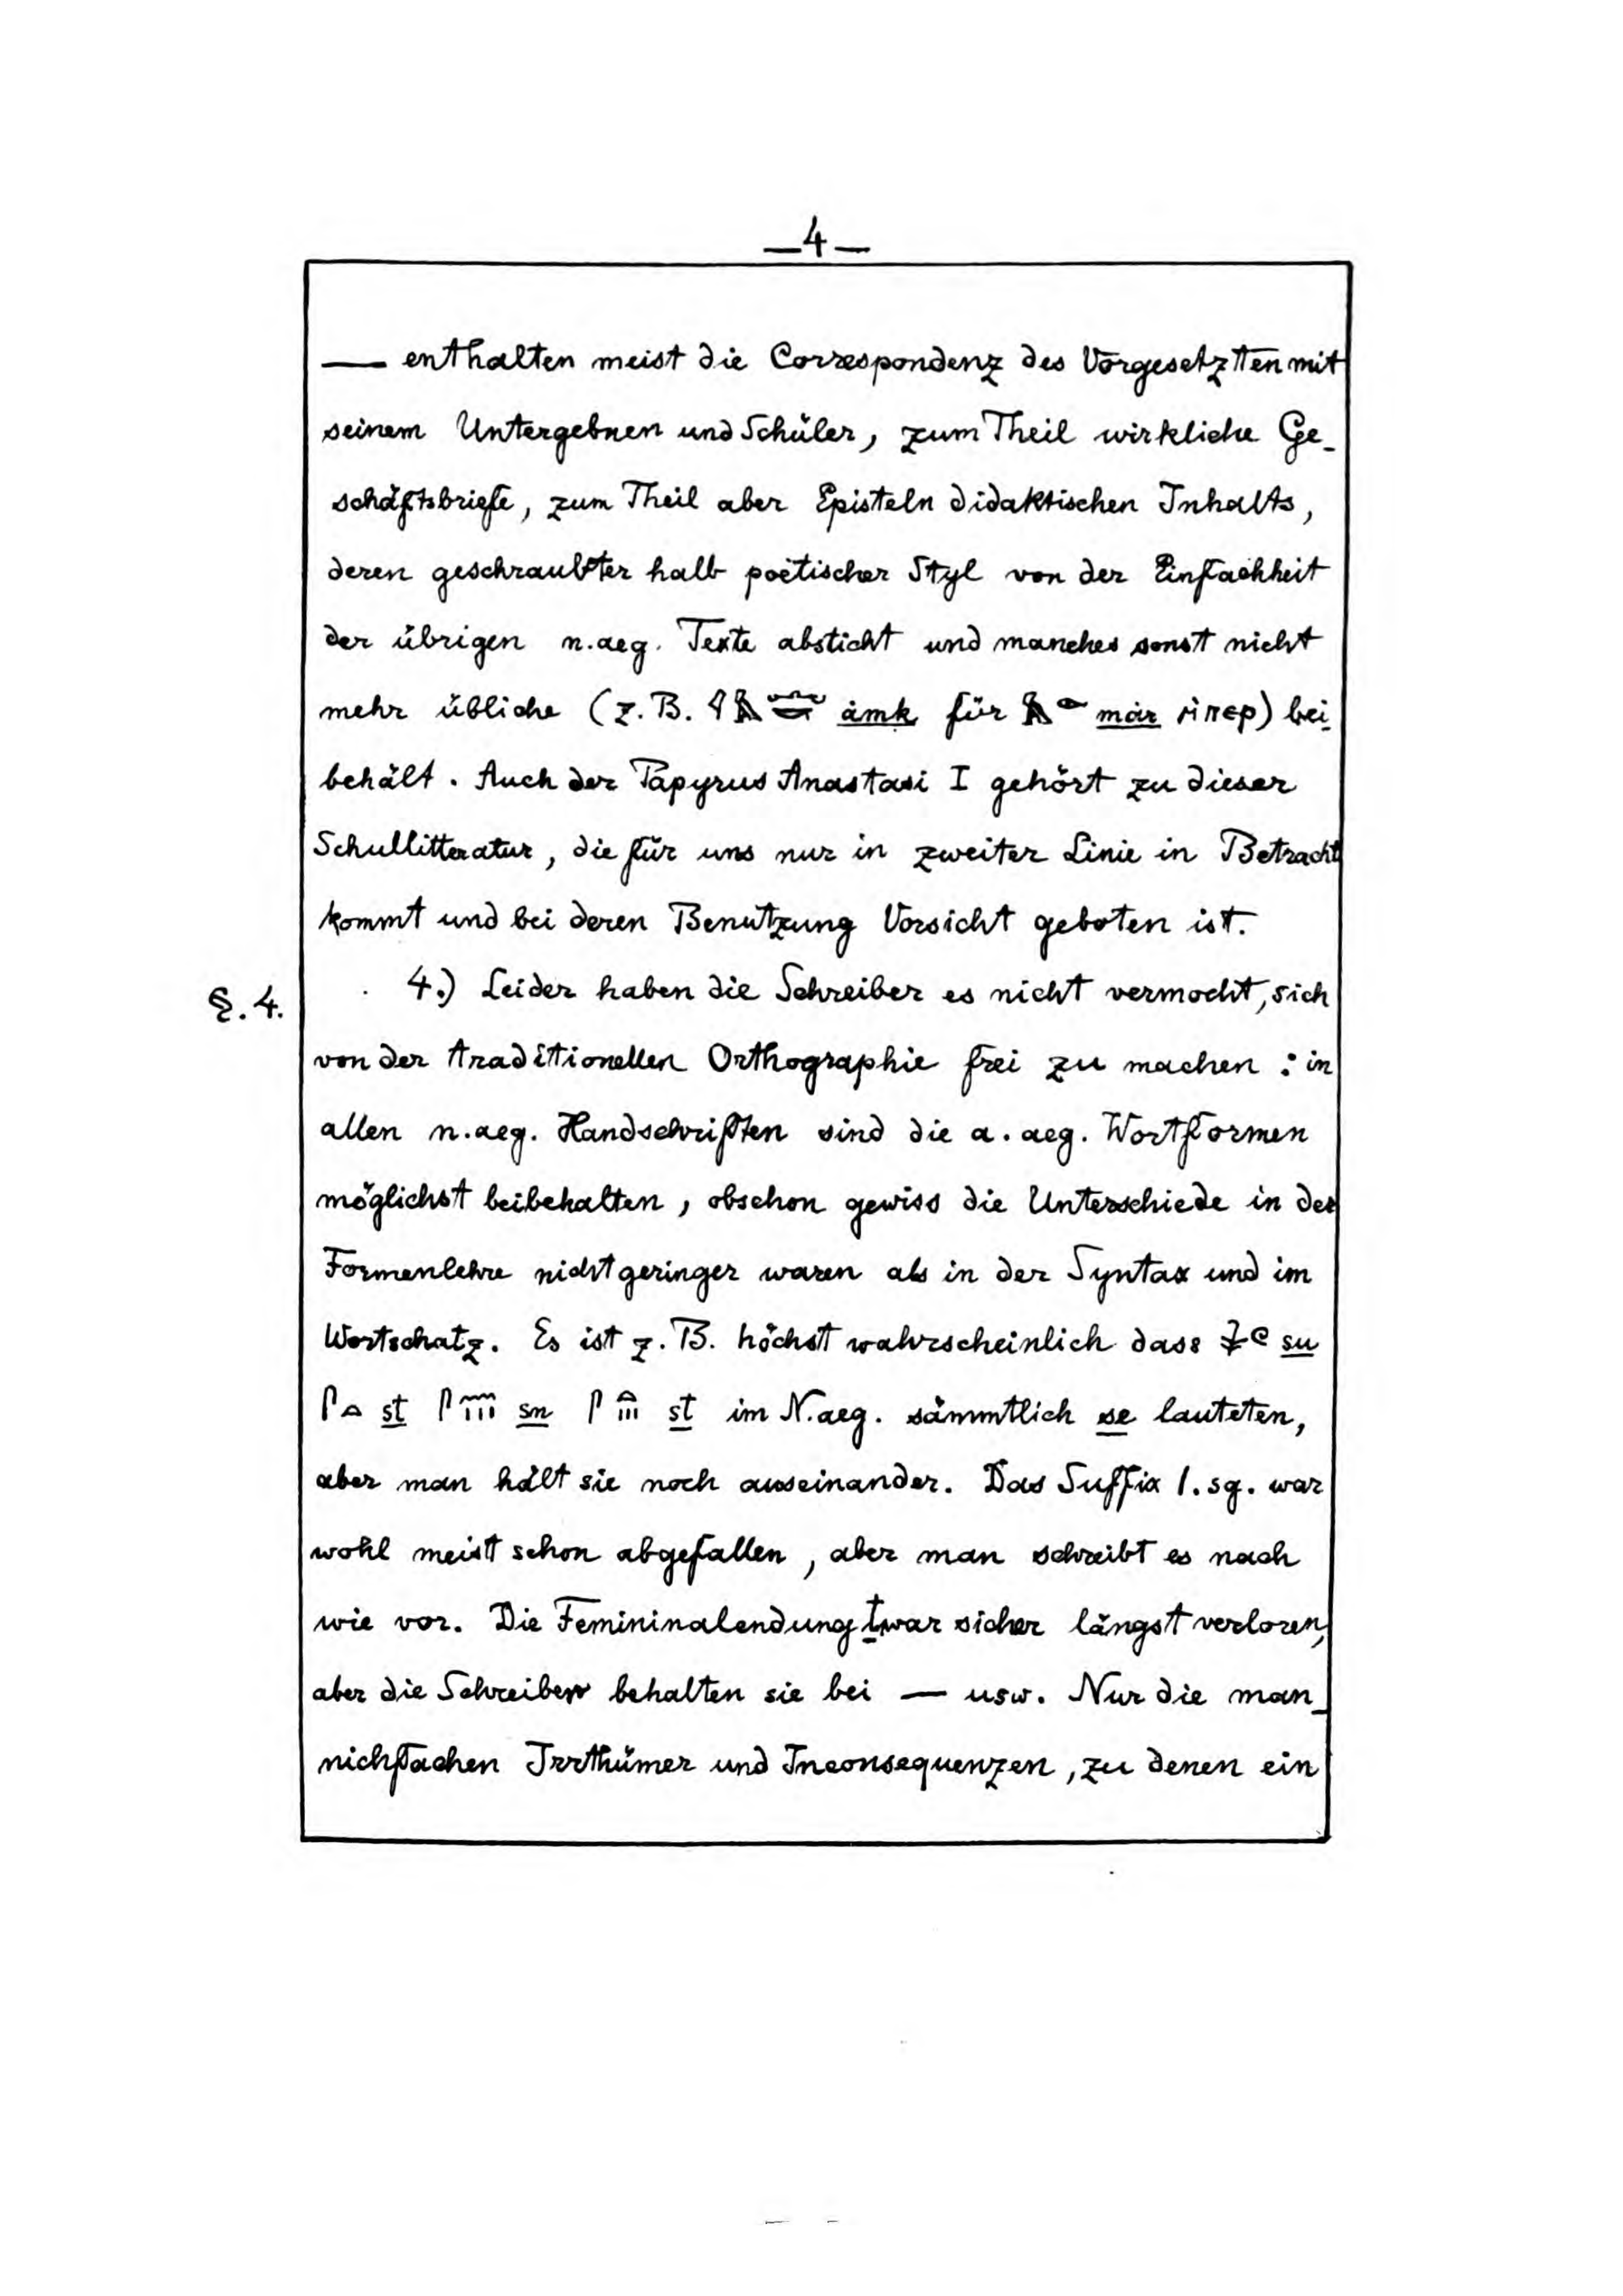 —4—
— enthalten meist die Correspondenz des Vorgesetzten mit
seinem Untergebnen und Schüler, zum Theil wirkliche Ge-
schäftsbriefe, zum Theil aber Episteln didaktischen Inhalts,
deren geschraubter halb poëtischer Styl von der Einfachheit
der übrigen n.aeg. Texte absticht und manches sonst nicht
mehr übliche (z.B. 𓇋𓅓𓂜𓎡 àmk für 𓅓𓂋 màr) bei-
behält. Auch der Papyrus Anastasi I gehört zu dieser
Schullitteratur, die für uns nur in zweiter Linie in Betracht
kommt und bei deren Benutzung Vorsicht geboten ist.
§. 4. 4.) Leider haben die Schreiber es nicht vermocht, sich
von der traditionellen Orthographie frei zu machen: in
allen n.aeg. Handschriften sind die a.aeg. Wortformen
möglichst beibehalten, obschon gewiss die Unterschiede in der
Formenlehre nicht geringer waren als in der Syntax und im
Wortschatz. Es ist z.B. höchst wahrscheinlich dass 𓇓𓏲 su
𓋴𓏏 st 𓋴𓈖𓏥 sn 𓋴𓏏𓏥 st im N.aeg. sämmtlich se lauteten,
aber man hält sie noch auseinander. Das Suffix 1. sg. war
wohl meist schon abgefallen, aber man schreibt es nach
wie vor. Die Femininalendung t war sicher längst verloren,
aber die Schreiber behalten sie bei — usw. Nur die man-
nichfachen Irrthümer und Inconsequenzen, zu denen ein